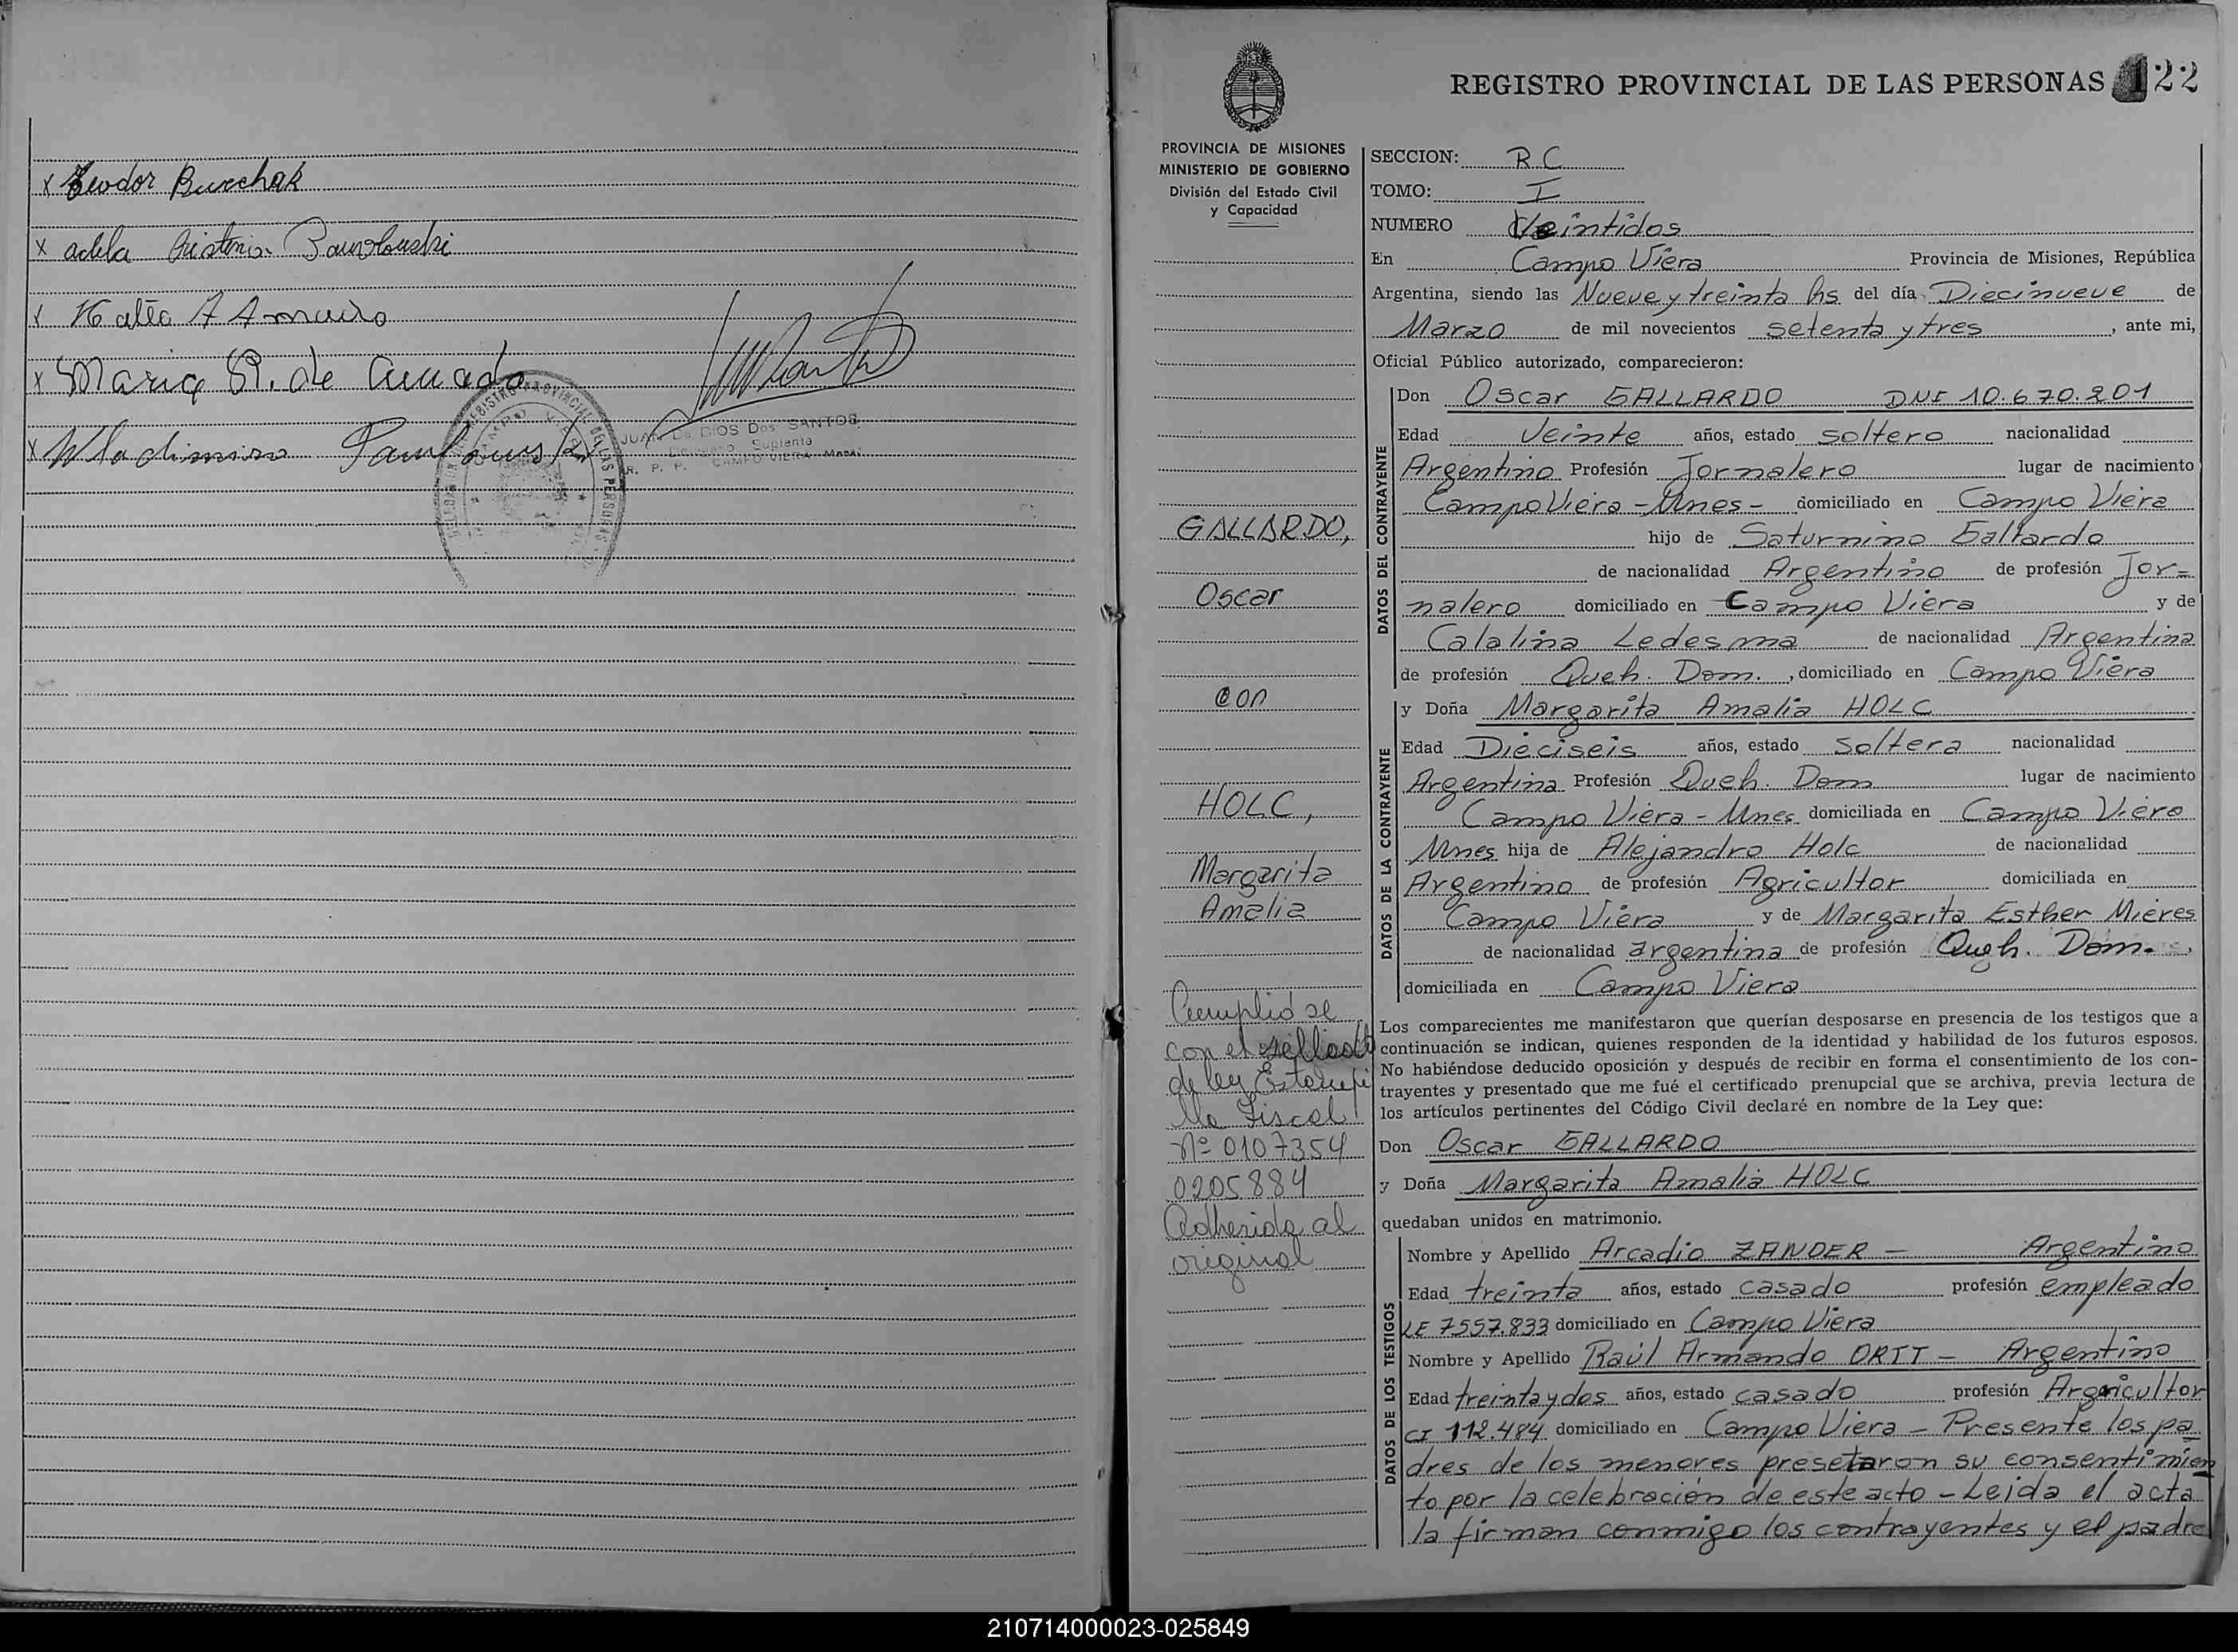 x Teodor Burchak
x adela Cristina Pawlowski
x Katia A Amaro
x Maria R. de Amado
x Wladimiro Pawlowski
JUAN De DIOS Dos SANTOS
Delegado Suplente
R. P. P. CAMPO VIERA Mnes.
REGISTRO PROVINCIAL DE LAS PERSONAS 122
PROVINCIA DE MISIONES
MINISTERIO DE GOBIERNO
División del Estado Civil
y Capacidad
GALLARDO,
Oscar
con
HOLC,
Margarita
Amalia
Cumplió se
con el sellado
de ley Estampi
lla Fiscal
Nº 0107354
0205884
Adherida al
original
SECCION: R.C
TOMO: I
NUMERO Veintidos
En Campo Viera Provincia de Misiones, República
Argentina, siendo las Nueve y treinta hs del día Diecinueve de
Marzo de mil novecientos setenta y tres, ante mi,
Oficial Público autorizado, comparecieron:
DATOS DEL CONTRAYENTE
Don Oscar GALLARDO DNI 10.670.201
Edad Veinte años, estado soltero nacionalidad
Argentino Profesión Jornalero lugar de nacimiento
Campo Viera - Mnes - domiciliado en Campo Viera
hijo de Saturnino Gallardo
de nacionalidad Argentino de profesión Jor=
nalero domiciliado en Campo Viera y de
Calalina Ledesma de nacionalidad Argentina
de profesión Queh. Dom. , domiciliado en Campo Viera
DATOS DE LA CONTRAYENTE
y Doña Margarita Amalia HOLC
Edad Dieciseis años, estado soltera nacionalidad
Argentina Profesión Queh. Dom lugar de nacimiento
Campo Viera - Mnes domiciliada en Campo Viera
Mnes hija de Alejandro Holc de nacionalidad
Argentino de profesión Agricultor domiciliada en
Campo Viera y de Margarita Esther Mieres
de nacionalidad argentina de profesión Queh. Dom.
domiciliada en Campo Viera
Los comparecientes me manifestaron que querían desposarse en presencia de los testigos que a
continuación se indican, quienes responden de la identidad y habilidad de los futuros esposos.
No habiéndose deducido oposición y después de recibir en forma el consentimiento de los con-
trayentes y presentado que me fué el certificado prenupcial que se archiva, previa lectura de
los artículos pertinentes del Código Civil declaré en nombre de la Ley que:
Don Oscar GALLARDO
y Doña Margarita Amalia HOLC
quedaban unidos en matrimonio.
DATOS DE LOS TESTIGOS
Nombre y Apellido Arcadio ZANDER - Argentino
Edad treinta años, estado casado profesión empleado
LE 7557.833 domiciliado en Campo Viera
Nombre y Apellido Raúl Armando ORTT - Argentino
Edad treinta y dos años, estado casado profesión Argricultor
CI 112.484 domiciliado en Campo Viera - Presente los pa
dres de los menores presetaron su consentimien
to por la celebración de este acto - Leida el acta
la firman conmigo los contrayentes y el padre
210714000023-025849